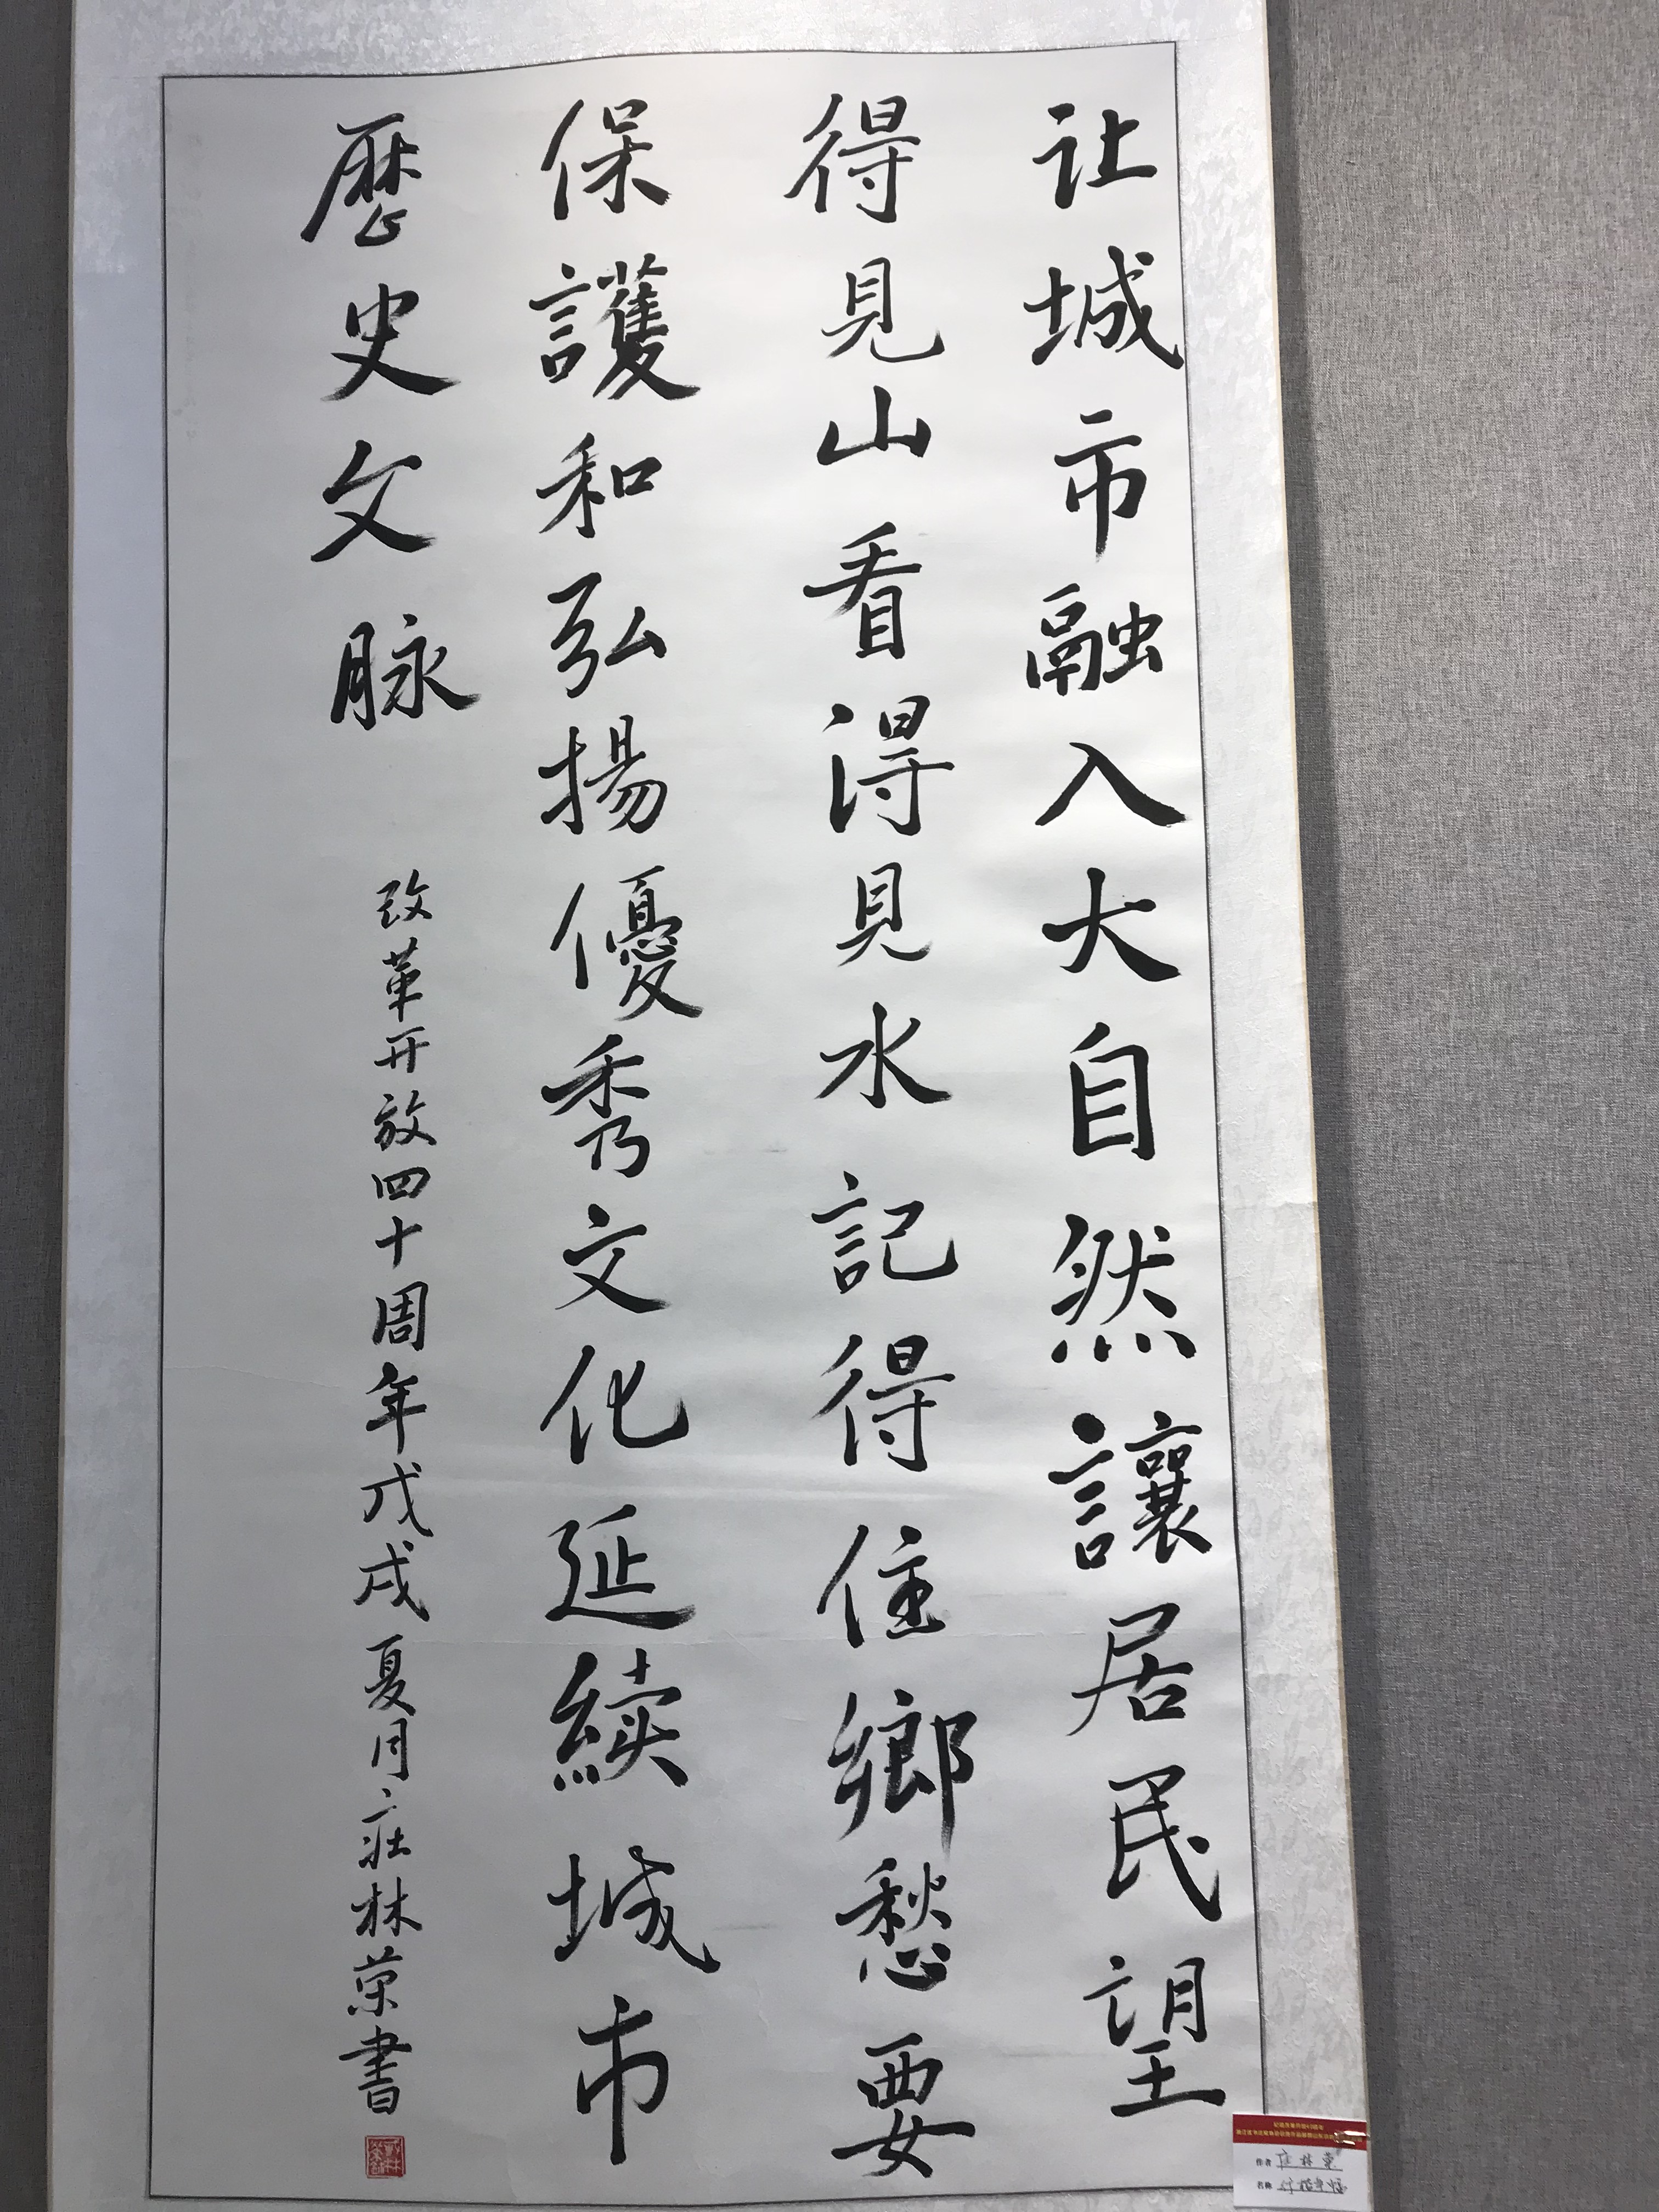 让城市融入大自然讓居民望
得見山看得見水記得住鄉愁要
保護和弘揚優秀文化延續城市
歷史文脉
改革开放四十周年戊戌夏月莊林荣書
作者 庄林荣
名称